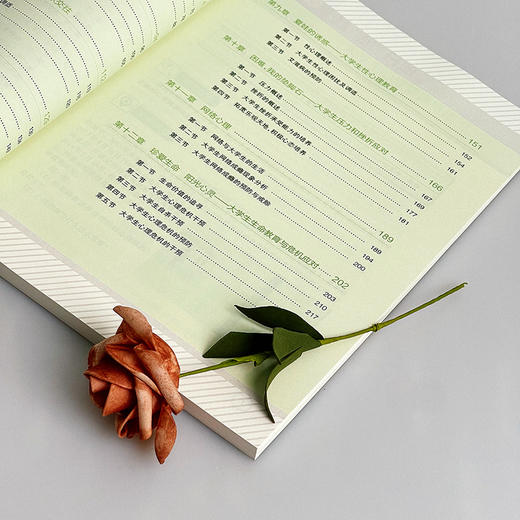 大交往
第九章 爱
的诱惑——大学生性心理教育 151
第一节 性心理概述 154
第二节 大学生性心理困扰及调适 161
第三节
的预防
第十章 困难，我的垫脚石——大学生压力和挫折应对 166
第一节 压力概述 167
第二节 挫折的概述 169
第三节 大学生挫折承受能力的培养 177
第四节 拓宽乐观天地，积极心态培养 181
第十一章 网络心理 189
第一节 网络与大学生的生活 189
第二节 大学生网络成瘾现象分析 194
第三节 大学生网络成瘾的预防与戒除 200
第十二章 珍爱生命 阳光心灵——大学生生命教育与危机应对 202
第一节 生命价值的追寻 203
第二节 大学生心理危机干预 210
第三节 大学生自杀干预 217
第四节 大学生心理危机的预防
第五节 大学生心理危机的干预